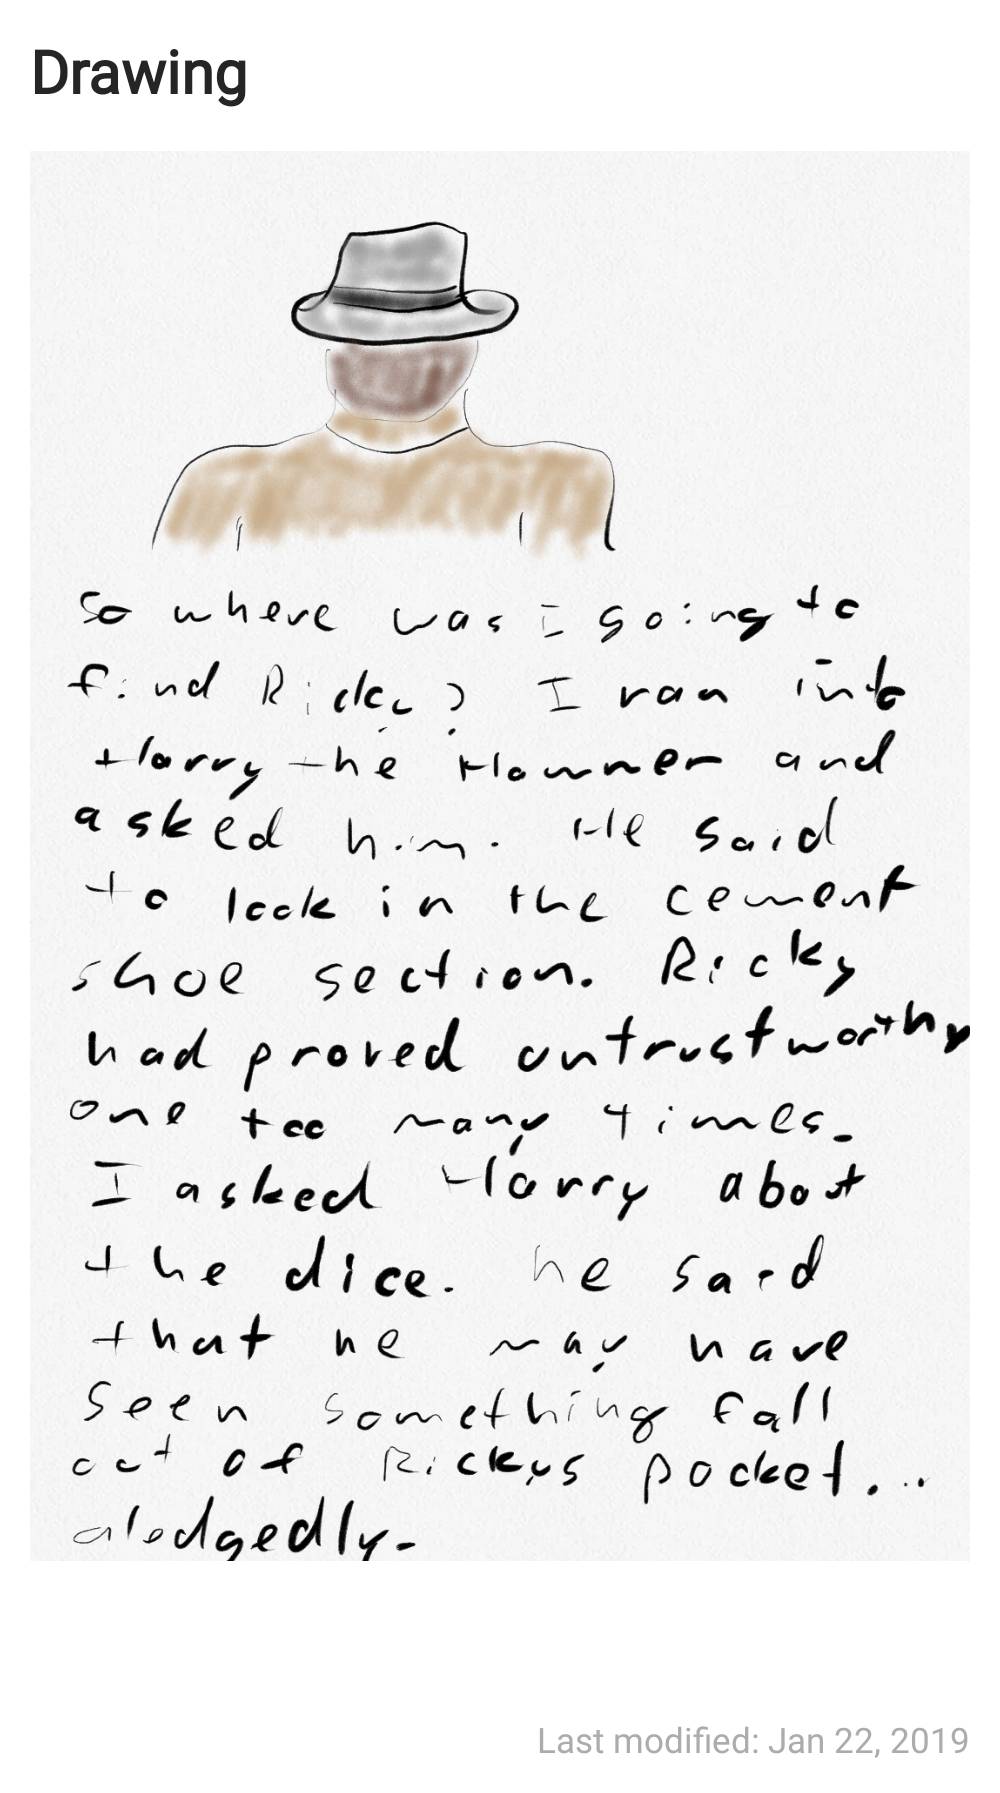 Drawing
So where was I going to
find Ricky? I ran into
Harry the Hammer and
asked him. He said
to look in the cement
shoe section. Ricky
had proved untrustworthy
one too many times.
I asked Harry about
the dice. he said
that he may have
seen something fall
out of Rickys pocket...
aledgedly.
Last modified: Jan 22, 2019